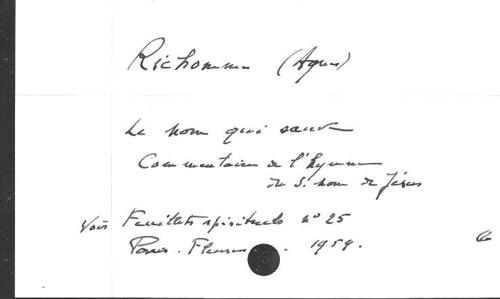 Richomme (Agnès)
Le nom qui sauve
Commentaire de l'hymne
du S. nom de Jésus
Voir Feuillets spirituels n° 25
Paris. Fleurus. 1959.